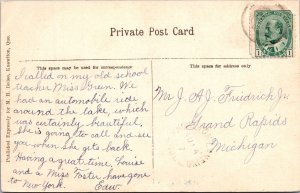 Private Post Card
This space may be used for correspondence
This space for address only
Published Expressly for M. H. Demo, Knowlton, Que.
I called on my old school
teacher Miss Green. We
had an automobile ride
around the lake, which
was certainly beautiful.
She is going to call and see
you when she gets back.
Having a great time, Louise
and a Miss Foster have gone
to New York. Edw.
Mr J. A. J. Friedrich Jr.
Grand Rapids
Michigan